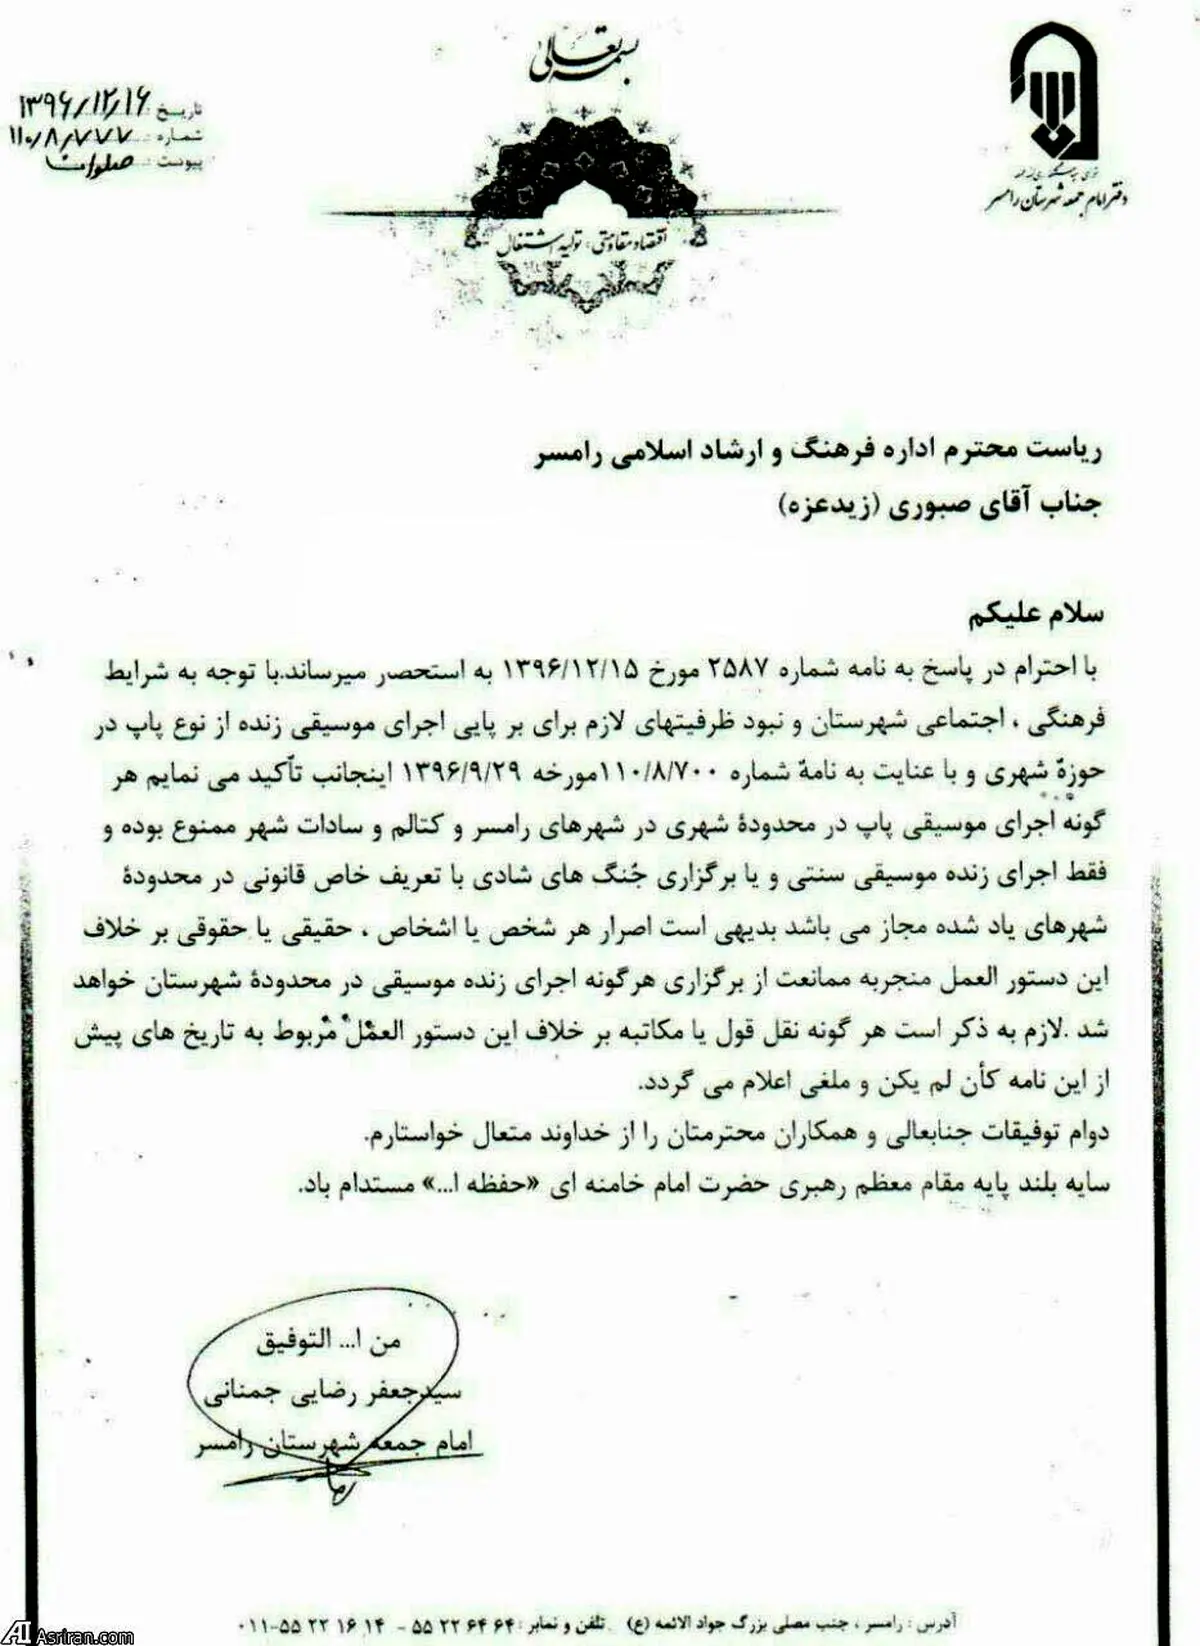 بسمه تعالی
تاریخ : ۱۳۹۶/۱۲/۱۶
شماره : ۱۱۰/۸/۷۷۷
پیوست : صلوات
دفتر امام جمعه شهرستان رامسر
اقتصاد مقاومتی، تولید اشتغال
ریاست محترم اداره فرهنگ و ارشاد اسلامی رامسر
جناب آقای صبوری (زیدعزه)
سلام علیکم
با احترام در پاسخ به نامه شماره ۲۵۸۷ مورخ ۱۳۹۶/۱۲/۱۵ به استحصر میرساند.با توجه به شرایط
فرهنگی ، اجتماعی شهرستان و نبود ظرفیتهای لازم برای بر پایی اجرای موسیقی زنده از نوع پاپ در
حوزهٔ شهری و با عنایت به نامهٔ شماره ۱۱۰/۸/۷۰۰مورخه ۱۳۹۶/۹/۲۹ اینجانب تأکید می نمایم هر
گونه اجرای موسیقی پاپ در محدودهٔ شهری در شهرهای رامسر و کتالم و سادات شهر ممنوع بوده و
فقط اجرای زنده موسیقی سنتی و یا برگزاری جُنگ های شادی با تعریف خاص قانونی در محدودهٔ
شهرهای یاد شده مجاز می باشد بدیهی است اصرار هر شخص یا اشخاص ، حقیقی یا حقوقی بر خلاف
این دستور العمل منجربه ممانعت از برگزاری هرگونه اجرای زنده موسیقی در محدودهٔ شهرستان خواهد
شد .لازم به ذکر است هر گونه نقل قول یا مکاتبه بر خلاف این دستور العمل مربوط به تاریخ های پیش
از این نامه کأن لم یکن و ملغی اعلام می گردد.
دوام توفیقات جنابعالی و همکاران محترمتان را از خداوند متعال خواستارم.
سایه بلند پایه مقام معظم رهبری حضرت امام خامنه ای «حفظه ا...» مستدام باد.
من ا... التوفیق
سیدجعفر رضایی جمنانی
امام جمعه شهرستان رامسر
آدرس : رامسر ، جنب مصلی بزرگ جواد الائمه (ع) تلفن و نمابر : ۵۵ ۲۲ ۶۴ ۶۴ - ۰۱۱-۵۵ ۲۲ ۱۶ ۱۴
Asriran.com